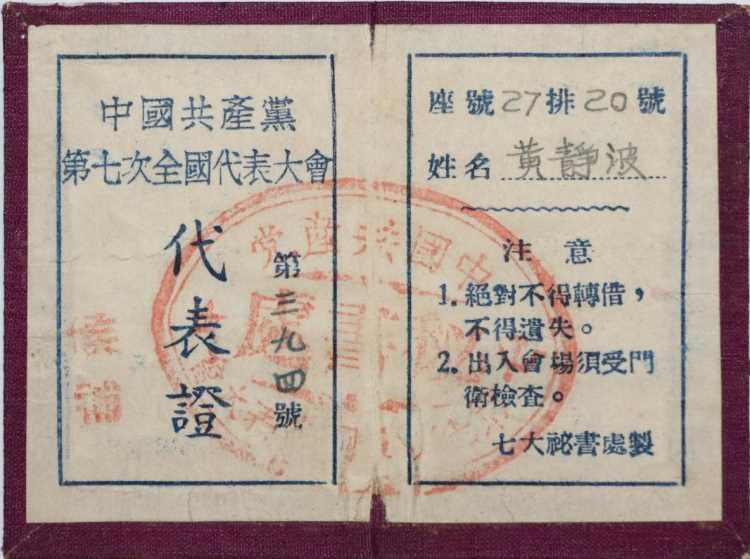 中國共產黨
第七次全國代表大會
代表證
第三九四號
座號27排20號
姓名 黄靜波
注意
1. 絕對不得轉借，
不得遺失。
2. 出入會場須受門
衛檢查。
七大祕書處製